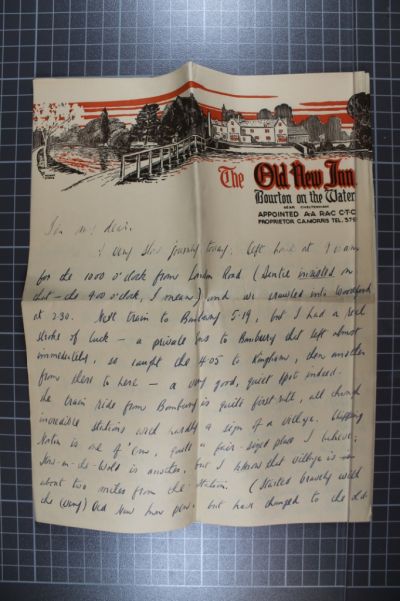 The Old New Inn
Bourton on the Water
NEAR CHELTENHAM
APPOINTED A·A RAC C·T·C
PROPRIETOR C.A.MORRIS TEL. 375
my dear.
A very slow journey today: left home at 9
for the 1000 o'clock from London Road (Auntie insisted on
that – the 900 o'clock, I mean) and we crawled into Woodford
at 2.30. Next train to Banbury 5·19, but I had a real
stroke of luck – a private bus to Banbury that left almost
immediately, so caught the 4.05 to Kingham, then another
from there to here – a very good, quiet spot indeed.
The train ride from Banbury is quite first-rate, all through
incredible stations with hardly a sign of a village. Chipping
Norton is one of 'em, quite a fair-sized place I believe;
Stow-on-the-Wold is another, but I know that village is
about two miles from the station. (Started bravely with
the (very) Old New Inn pen, but have changed to the old